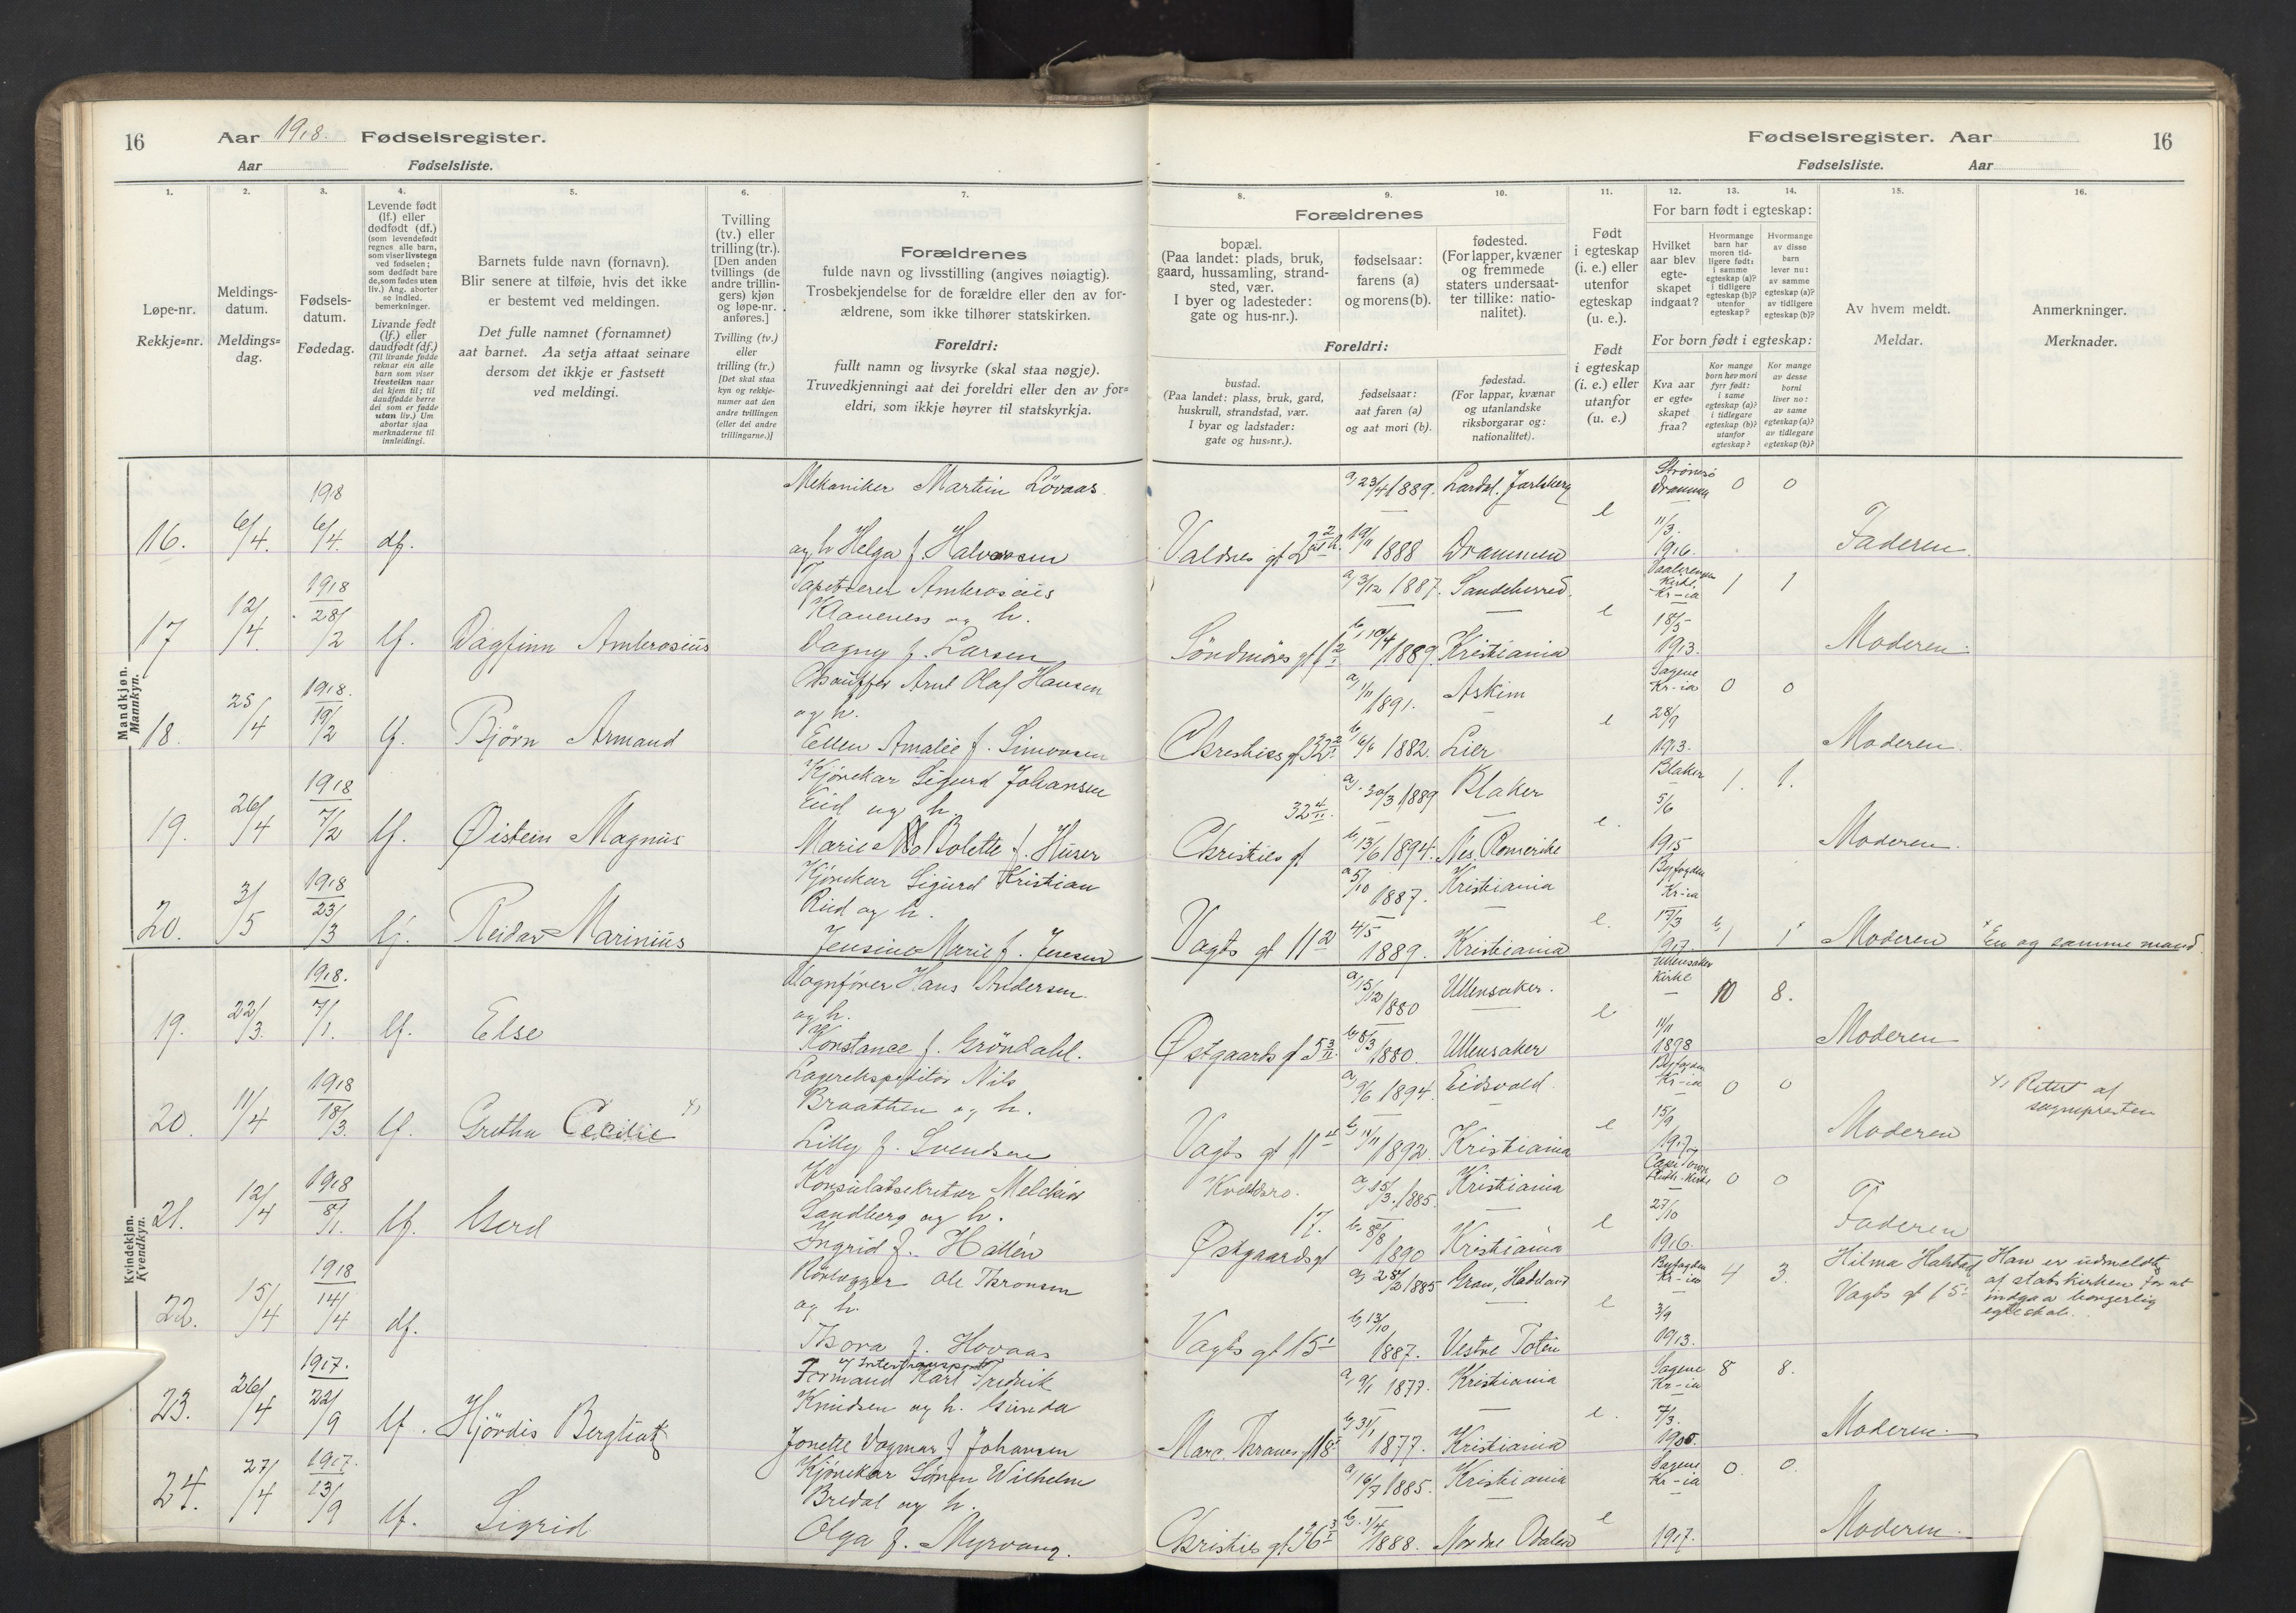 16
Aar 1918. Fødselsregister.
Aar Fødselsliste.
Fødselsregister. Aar
16
Fødselsliste. Aar
1.
Løpe-nr.
Rekkje=nr.
2.
Meldings-
datum.
Meldings=
dag.
3.
Fødsels-
datum.
Fødedag.
4.
Levende født
(lf.) eller
dødfødt (df.)
(som levendefødt
regnes alle barn,
som viser livstegn
ved fødselen;
som dødfødt bare
de, som fødes uten
liv.) Ang. aborter
se indled.
bemerkninger.
Livande født
(lf.) eller
daudfødt (df.)
(Til livande fødde
reknar ein alle
barn som viser
livsteikn naar
dei kjem til; til
daudfødde berre
dei som er fødde
utan liv.) Um
abortar sjaa
merknaderne til
innleidingi.
5.
Barnets fulde navn (fornavn).
Blir senere at tilføie, hvis det ikke
er bestemt ved meldingen.
Det fulle namnet (fornamnet)
aat barnet. Aa setja attaat seinare
dersom det ikkje er fastsett
ved meldingi.
6.
Tvilling
(tv.) eller
trilling (tr.).
[Den anden
tvillings (de
andre trillin-
gers) kjøn
og løpe-nr.
anføres.]
Tvilling (tv.)
eller
trilling (tr.)
[Det skal staa
kyn og rekkje-
numer aat den
andre tvillingen
(eller dei andre
trillingarne.)]
7.
Forældrenes
fulde navn og livsstilling (angives nøiagtig).
Trosbekjendelse for de forældre eller den av for-
ældrene, som ikke tilhører statskirken.
Foreldri:
fullt namn og livsyrke (skal staa nøgje).
Truvedkjenningi aat dei foreldri eller den av for=
eldri, som ikkje høyrer til statskyrkja.
Forældrenes
8.
bopæl.
(Paa landet: plads, bruk,
gaard, hussamling, strand-
sted, vær.
I byer og ladesteder:
gate og hus-nr.).
Foreldri:
bustad.
(Paa landet: plass, bruk, gard,
huskrull, strandstad, vær.
I byar og ladstader:
gate og hus=nr.).
9.
fødselsaar:
farens (a)
og morens (b).
fødselsaar:
aat faren (a)
og aat mori (b).
10.
fødested.
(For lapper, kvæner
og fremmede
staters undersaat-
ter tillike: natio-
nalitet).
fødestad.
(For lappar, kvænar
og utanlandske
riksborgarar og:
nationalitet).
11.
Født
i egteskap
(i. e.) eller
utenfor
egteskap
(u. e.).
Født
i egteskap
(i. e.) eller
utanfor
(u. e.)
For barn født i egteskap:
For born født i egteskap:
12.
Hvilket
aar blev
egte-
skapet
indgaat?
Kva aar
er egte=
skapet
fraa?
13.
Hvormange
barn har
moren tid-
ligere født:
i samme
egteskap (a)?
i tidligere
egteskap (b)?
utenfor
egteskap?
Kor mange
born hev mori
fyrr født:
i same
egteskap (a)?
i tidlegare
egteskap (b)?
utanfor
egteskap?
14.
Hvormange
av disse
barn
lever nu:
av samme
egteskap (a)?
av tidligere
egteskap (b)?
Kor mange
av desse
borni
liver no:
av same
egteskap (a)?
av tidlegare
egteskap (b)?
15.
Av hvem meldt.
Meldar.
16.
Anmerkninger.
Merknader.
Mandkjøn.
Mannkyn.
16. 6/4. 1918 6/4. df. Mekaniker Martin Lövaas
og h Helga f. Halvorsen
Valdres gt 2 a, 23/4 1889. Lardal. Jarlsberg
19/11 1888 Drammen e Strømsø
Drammen
11/3. 1916. 0 0 Faderen.
17 12/4. 1918 28/2 lf. Dagfinn Ambrosius Tapetserer Ambrosius
Klaveness og h.
Dagny f. Larsen
Söndmöres gt a, 3/12 1887. Sandeherred.
b, 10/4 1889. Kristiania e Vaalerengen
Kirke
Kr-ia
18/5 1913. 1 1 Moderen.
18. 25/4 1918. 19/2 lf. Bjørn Armand Chauffør Arnt Olaf Hansen
og h.
Ellen Amalie f. Simonsen
Christies gt 32 a, 1/11 1891. Askim
b, 6/6 1882. Lier e Sagene
Kr-ia
28/9 1913. 0 0 Moderen.
19. 26/4 1918 7/2 lf. Øistein Magnus Kjørekar Sigurd Johansen
Eid og h.
Marie Bolette f. Huser
32 4/II.
Christies gt a, 30/3 1889 Blaker
b, 13/6 1894. Nes, Romerike e. Blaker
5/6 1915 1. 1. Moderen.
20. 3/5 1918 23/3 lf. Reidar Marinius Kjørekar Sigurd Kristian
Rud og h.
Jensine Marie f. Jensen
Vagts gt 11 a 5/10 1887. Kristiania
4/5 1889. Kristiania e. Byfogden
Kr-ia
17/3 1917. b, 1 1 Moderen x En og samme mand.
Kvindekjøn.
Kvendkyn.
19. 22/3. 1918. 7/1. lf. Else Vognfører Hans Andersen
og h.
Konstance f. Gröndahl.
Østgaards gt 5 a, 15/12 1880 Ullensaker.
b, 8/3 1880. Ullensaker e Ullensaker
Kirke
11/11 1898 10 8. Moderen
20. 11/4 1918 18/3. lf. Grethe Cecilie x) Lagerekspeditør Nils
Braathen og h.
Lilly f. Svendsen
Vagts gt 11 a, 9/6 1894. Eidsvold.
b, 11/11 1892. Kristiania e Byfogden
Kr-ia
15/9 1917 0 0 Moderen x, Rettet af
sognepresten
21. 12/4 1918 8/1. lf. Gerd Konsulatsekretær Melchior
Sandberg og h.
Ingrid f. Hallén
17.
Østgaardsgt a, 15/3. 1885. Kristiania
b, 8/8 1890 Kristiania e Cape Town
27/10 1916. 0 0 Faderen
22. 15/4 1918 14/4 df. Rørlægger Ole Thronsen
og h.
Thora f. Hovaas
Vagts gt 15 a, 28/2 1885 Gran, Hadeland
b, 13/10 1887. Vestre Toten e Byfogden
Kr-ia
3/9 1913. 4 3. Hilma Halstad
Vagts gt 15 Han er udmeldt
af statskirken for at
indgaa borgerlig
egteskab.
23. 26/4 1917. 22/9 lf. Hjördis Bergliot Formand Karl Fredrik
Knudsen og h. Gunda
Jonette Dagmar f. Johansen
Marc. Thranes gt 18 a, 9/1 1877. Kristiania
b, 31/1 1877. Kristiania e. Sagene
Kr-ia
7/3. 1900. 8 8. Moderen.
24. 27/4 1917. 13/9 lf. Sigrid Kjørekar Søren Wilhelm
Bredal og h.
Olga f. Myrvang.
Christies gt 36 a, 16/7 1885. Kristiania
b. 1/4 1888. Nordre Odalen e Sagene
Kr-ia
1917. 0. 0. Moderen.